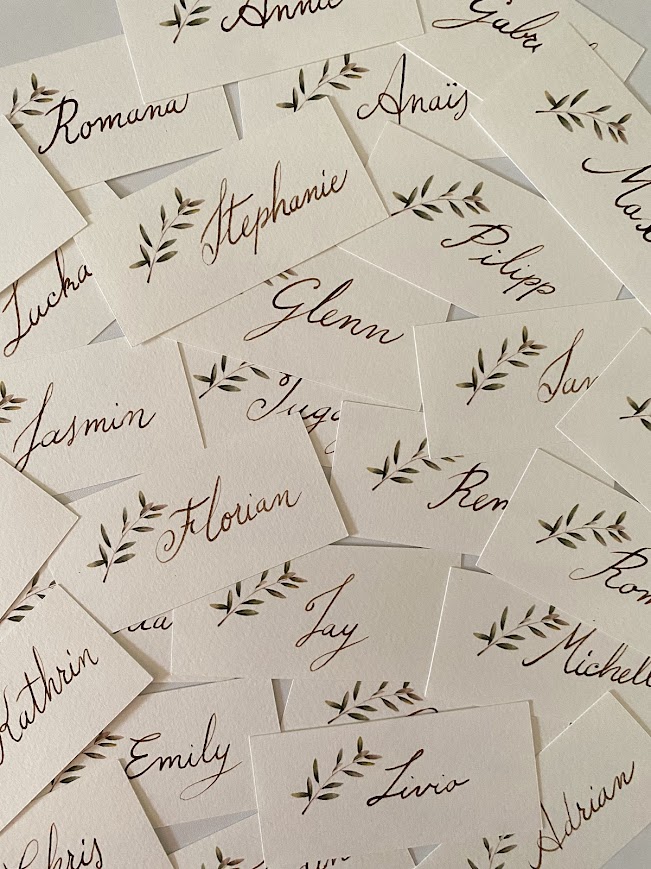 Annie
Romana
Anaïs
Stephanie
Pilipp
Lucka
Glenn
Jasmin
Florian
Jay
Kathrin
Emily
Livio
Adrian
Chris